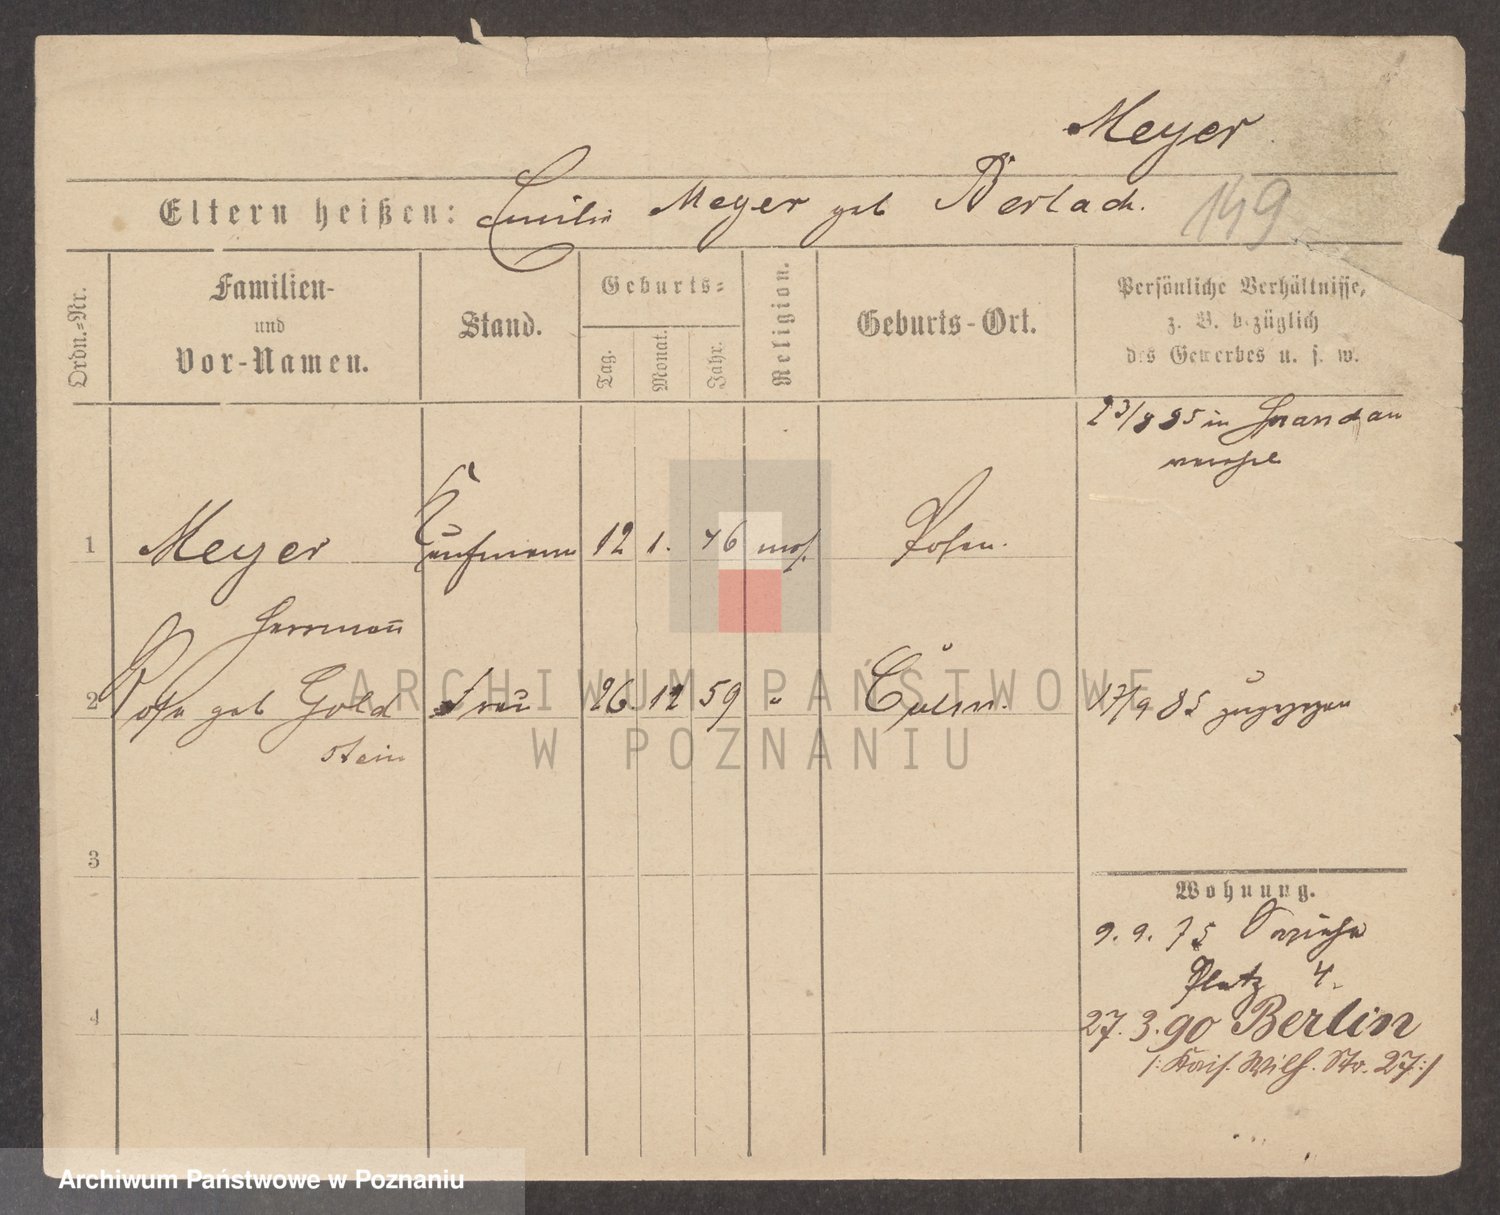 Meyer
Eltern heißen: Emilie Meyer geb Berlach.
149
Ordn.-Nr.
Familien-
und
Vor-Namen.
Stand.
Geburts-
Tag.
Monat.
Jahr.
Religion.
Geburts-Ort.
Persönliche Verhältnisse,
z. B. bezüglich
des Gewerbes u. s. w.
23/8 85 in Spandau
1 Meyer Kaufmann 12 1. 46 mos. Posen.
Herrmann
2 Rosa geb Gold Frau 26. 12 59 " Culm. 17/9 85 zugezogen
stein
3
Wohnung.
9. 9. 75
Platz 4.
4
27. 3. 90 Berlin
/: Kais. Wilh. Str. 27 :/
ARCHIWUM PAŃSTWOWE
W POZNANIU
Archiwum Państwowe w Poznaniu